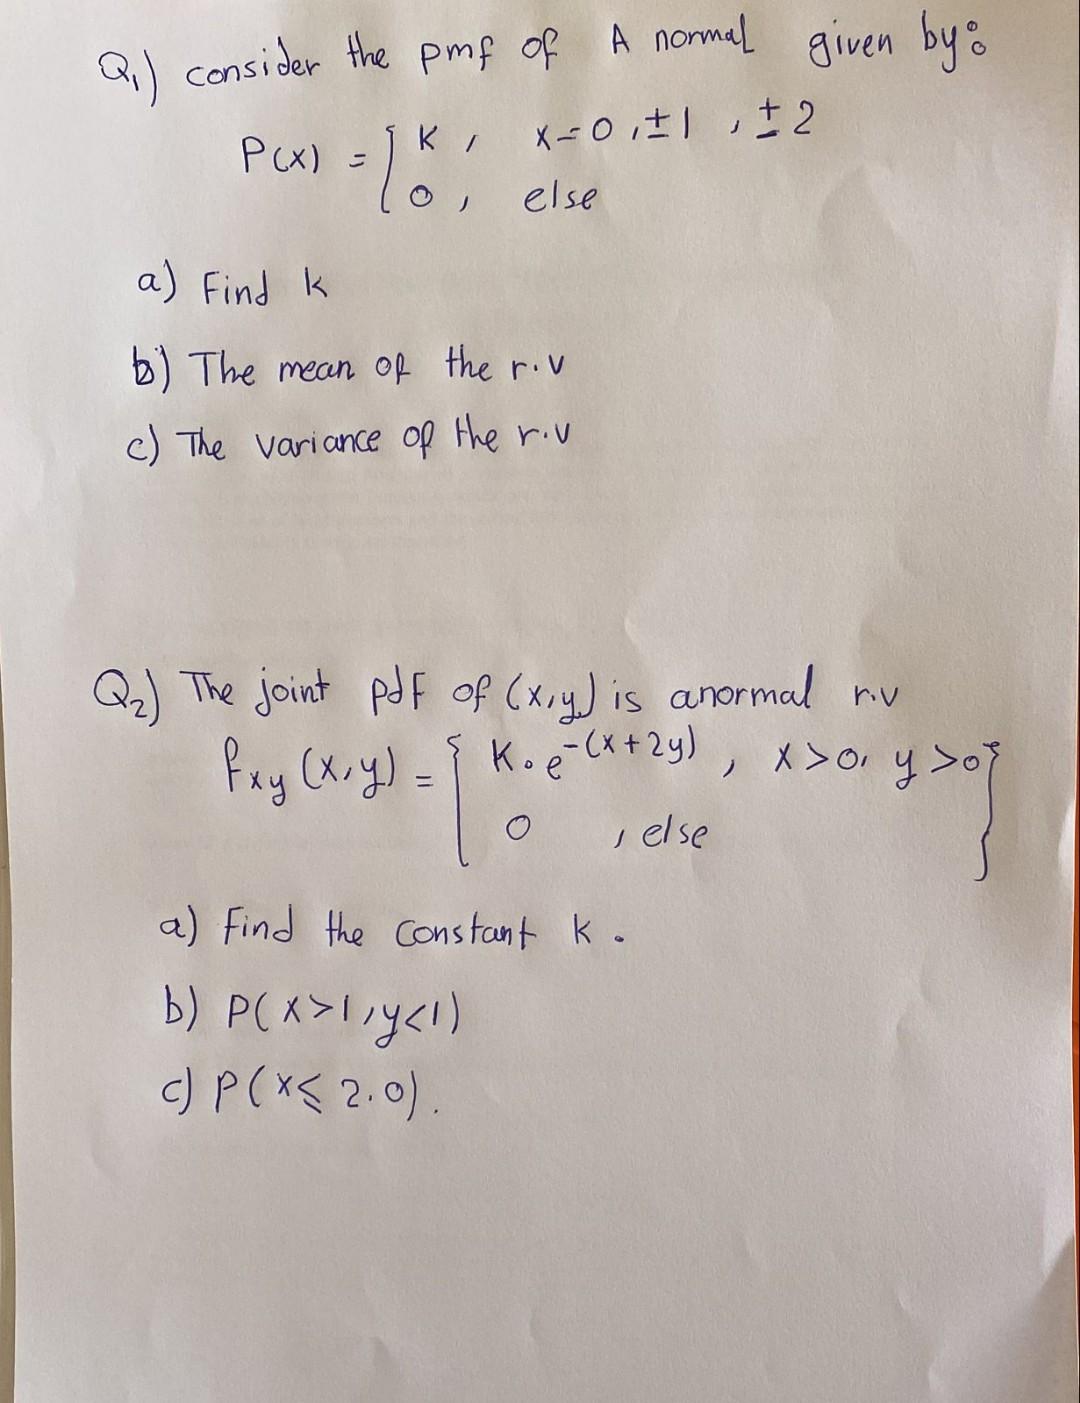 Q1) consider the pmf of A normal given by:
P(x) = { K , x=0, ±1 , ±2
0 , else
a) Find k
b) The mean of the r.v
c) The variance of the r.v
Q2) The joint pdf of (x,y) is anormal r.v
fxy (x,y) = { K.e^-(x+2y) , x>0, y>0 }
0 , else
a) Find the constant k.
b) P(x>1,y<1)
c) P(x≤ 2.0).